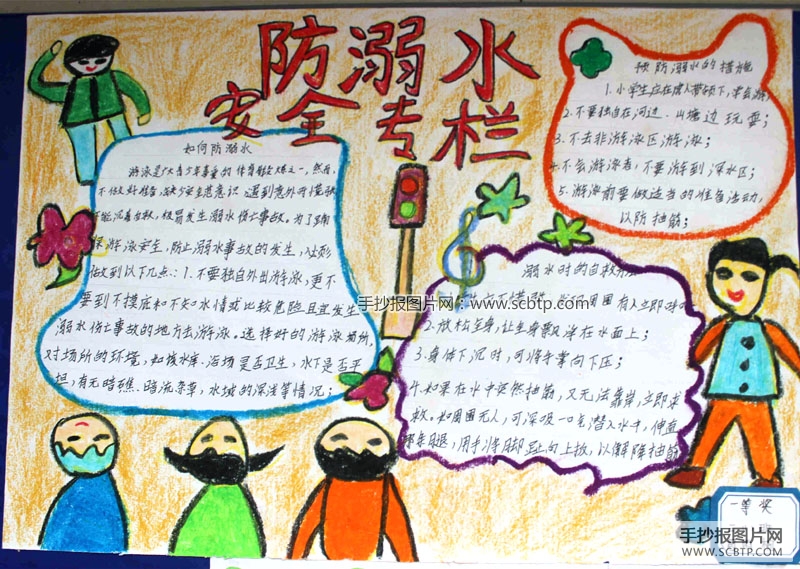 防溺水
安全专栏
如何防溺水
游泳是广大青少年喜爱的体育锻炼之一，然而，
不做好准备、缺少安全意识，遇到意外时慌张
不能沉着自救，极易发生溺水伤亡事故。为了确
保游泳安全，防止溺水事故的发生，必须
做到以下几点：1.不要独自外出游泳，更不
要到不摸底和不知水情或比较危险且宜发生
溺水伤亡事故的地方去游泳。选择好的游泳场所，
对场所的环境，如该水库、浴场是否卫生，水下是否平
坦，有无暗礁、暗流、杂草，水域的深浅等情况；
预防溺水的措施
1.小学生应在成人带领下，学会游
2.不要独自在河边、山塘边玩耍；
3.不去非游泳区游泳；
4.不会游泳者，不要游到深水区；
5.游泳前要做适当的准备活动，
以防抽筋；
溺水时的自救方法
周围有人立即呼
2.放松全身，让身体飘浮在水面上；
3.身体下沉时，可将手掌向下压；
4.如果在水中突然抽筋，又无法靠岸，立即求
救。如周围无人，可深吸一口气潜入水中，伸直
那条腿，用手将脚趾向上扳，以解除抽筋
手抄报图片网：www.scbtp.com
一等奖
手抄报图片网
WWW.SCBTP.COM